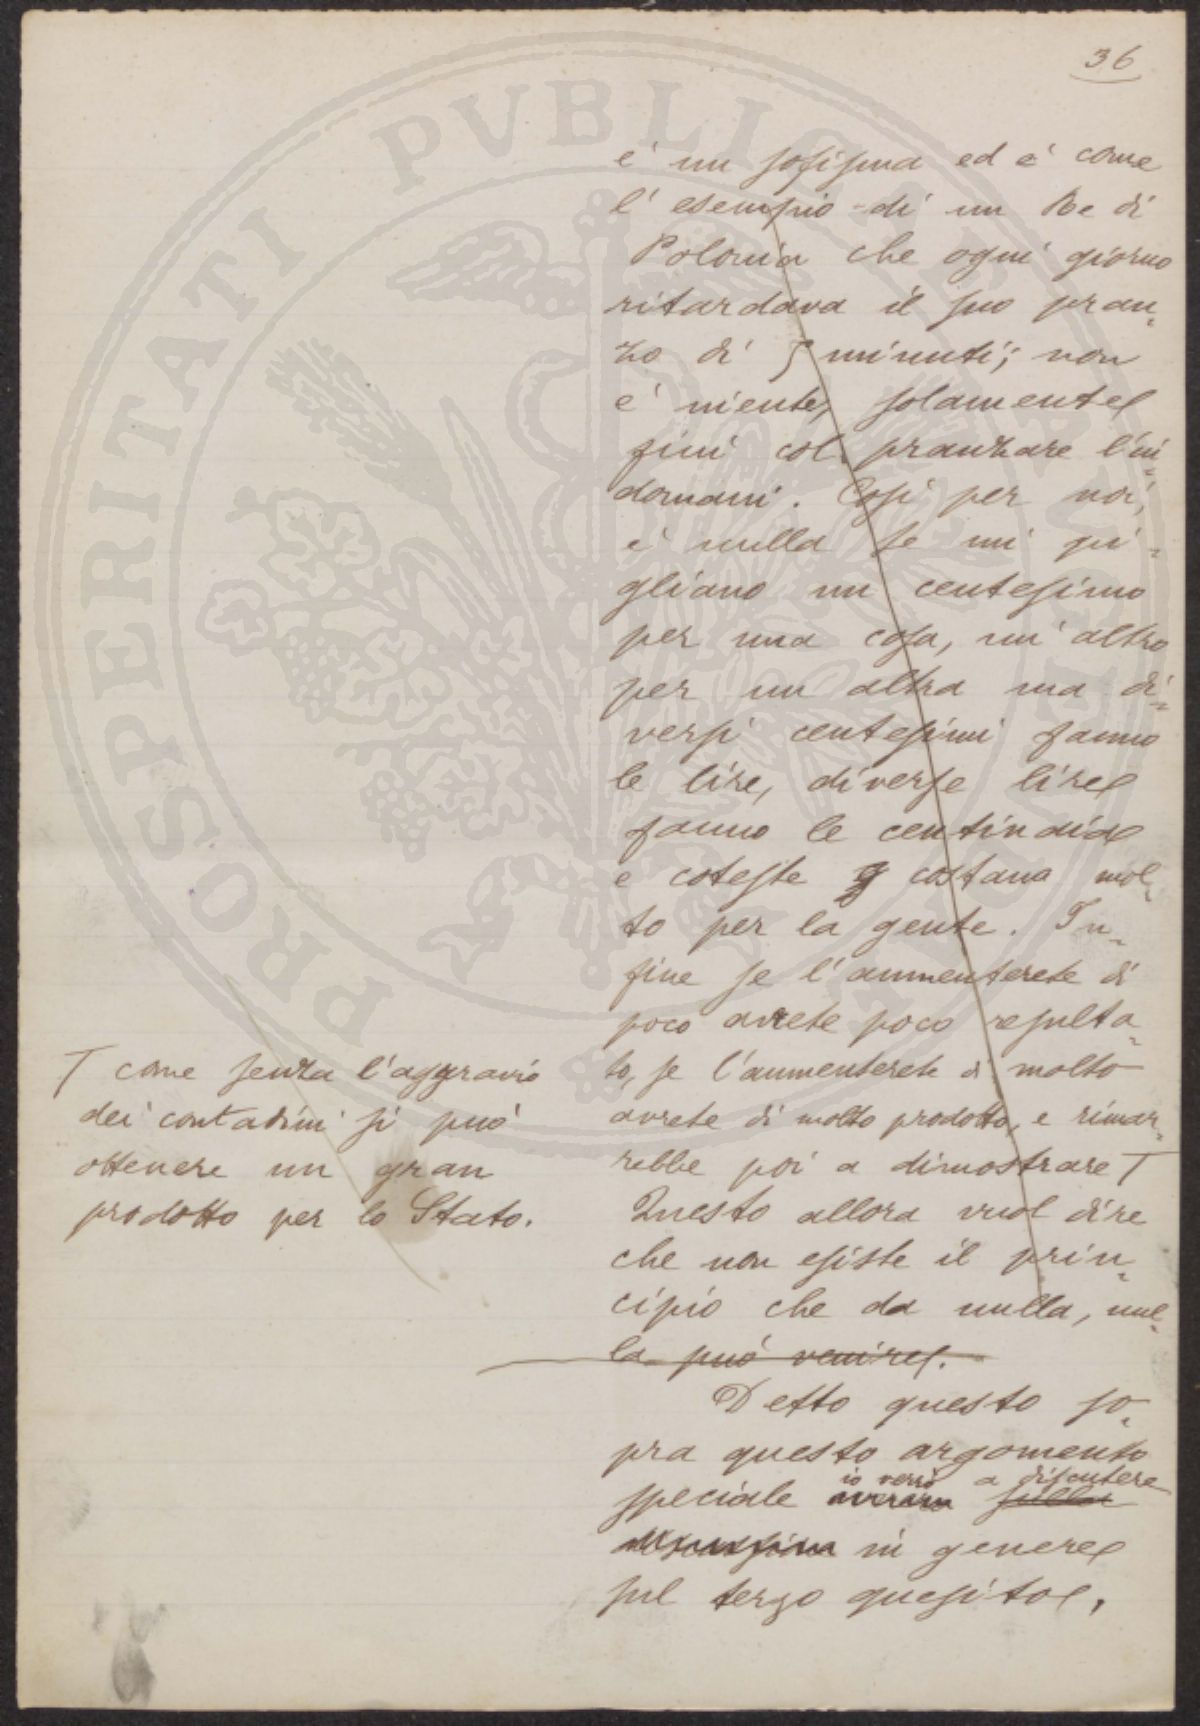 36
è un sofisma ed è come
l'esempio di un Re di
Polonia che ogni giorno
ritardava il suo pran-
zo di 5 minuti; non
è niente, solamente
finì col pranzare l'in-
domani. Così per noi,
è nulla se mi pi-
gliano un centesimo
per una cosa, un altro
per un altra ma di-
versi centesimi fanno
le lire, diverse lire
fanno le centinaia
e coteste costano mol-
to per la gente. In-
fine se l'aumenterete di
poco avrete poco resulta-
to, se l'aumenterete di molto
avrete di molto prodotto, e rimar-
rebbe poi a dimostrare T
T come senza l'aggravio
dei contadini si può
ottenere un gran
prodotto per lo Stato.
Questo allora vuol dire
che non esiste il prin-
cipio che da nulla, nul-
la può venire.
Detto questo so-
pra questo argomento
io verrò a discutere
speciale sulla
in genere
sul terzo quesito.
PROSPERITATI PVBLICAE